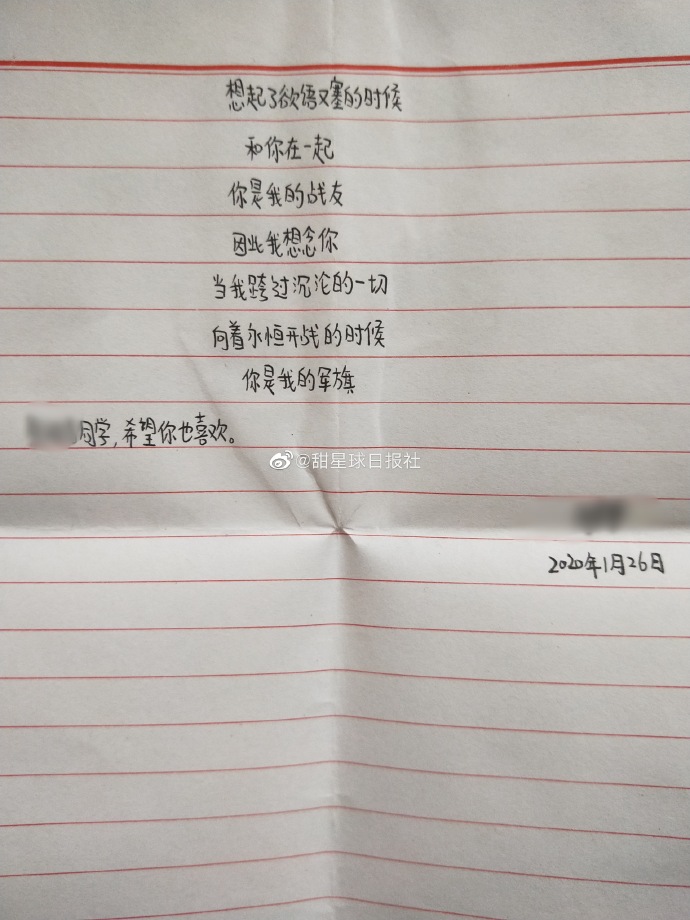 想起了欲语又塞的时候
和你在一起
你是我的战友
因此我想念你
当我跨过沉沦的一切
向着永恒开战的时候
你是我的军旗
同学,希望你也喜欢。
@甜星球日报社
2020年1月26日